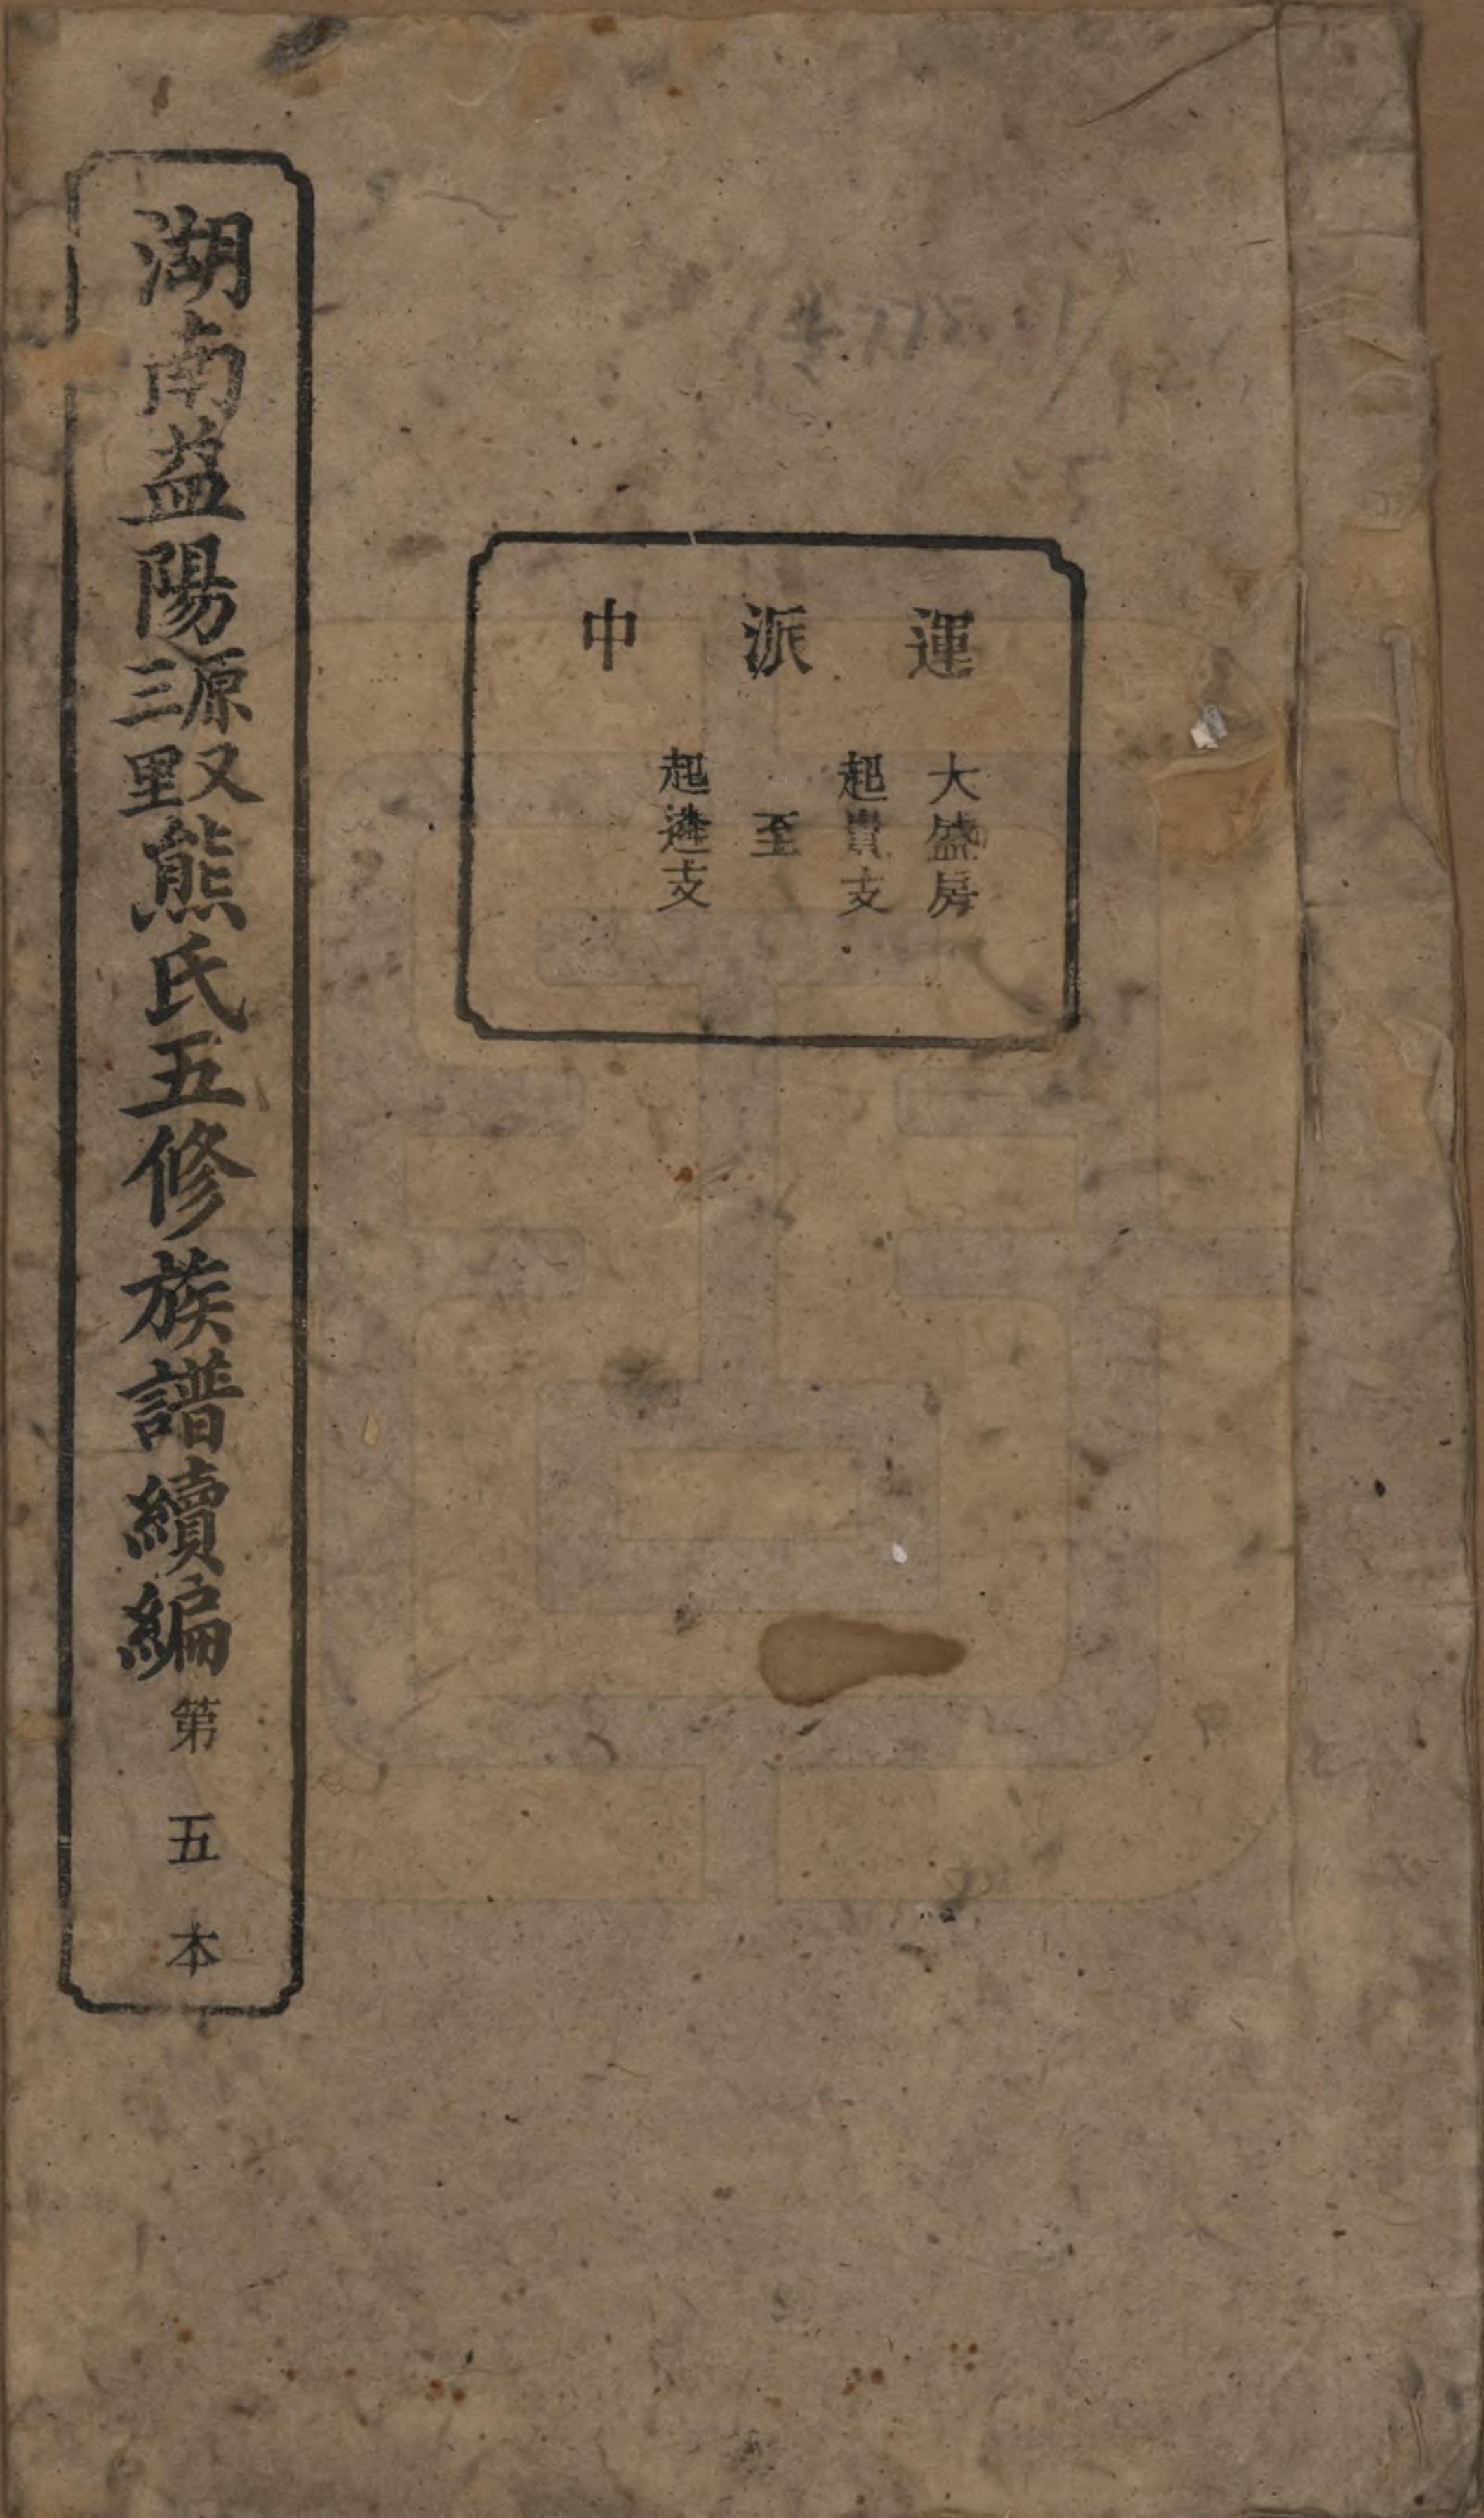 運派中
大盛房
起貴支
至
起遴支
湖南益陽源又三里熊氏五修族譜續編 第五本